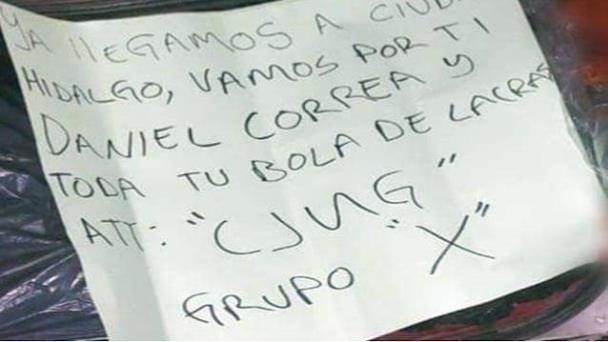 YA LLEGAMOS A CIUDA
HIDALGO, VAMOS POR TI
DANIEL CORREA Y
TODA TU BOLA DE LACRAS
ATT: "CJNG"
GRUPO "X"